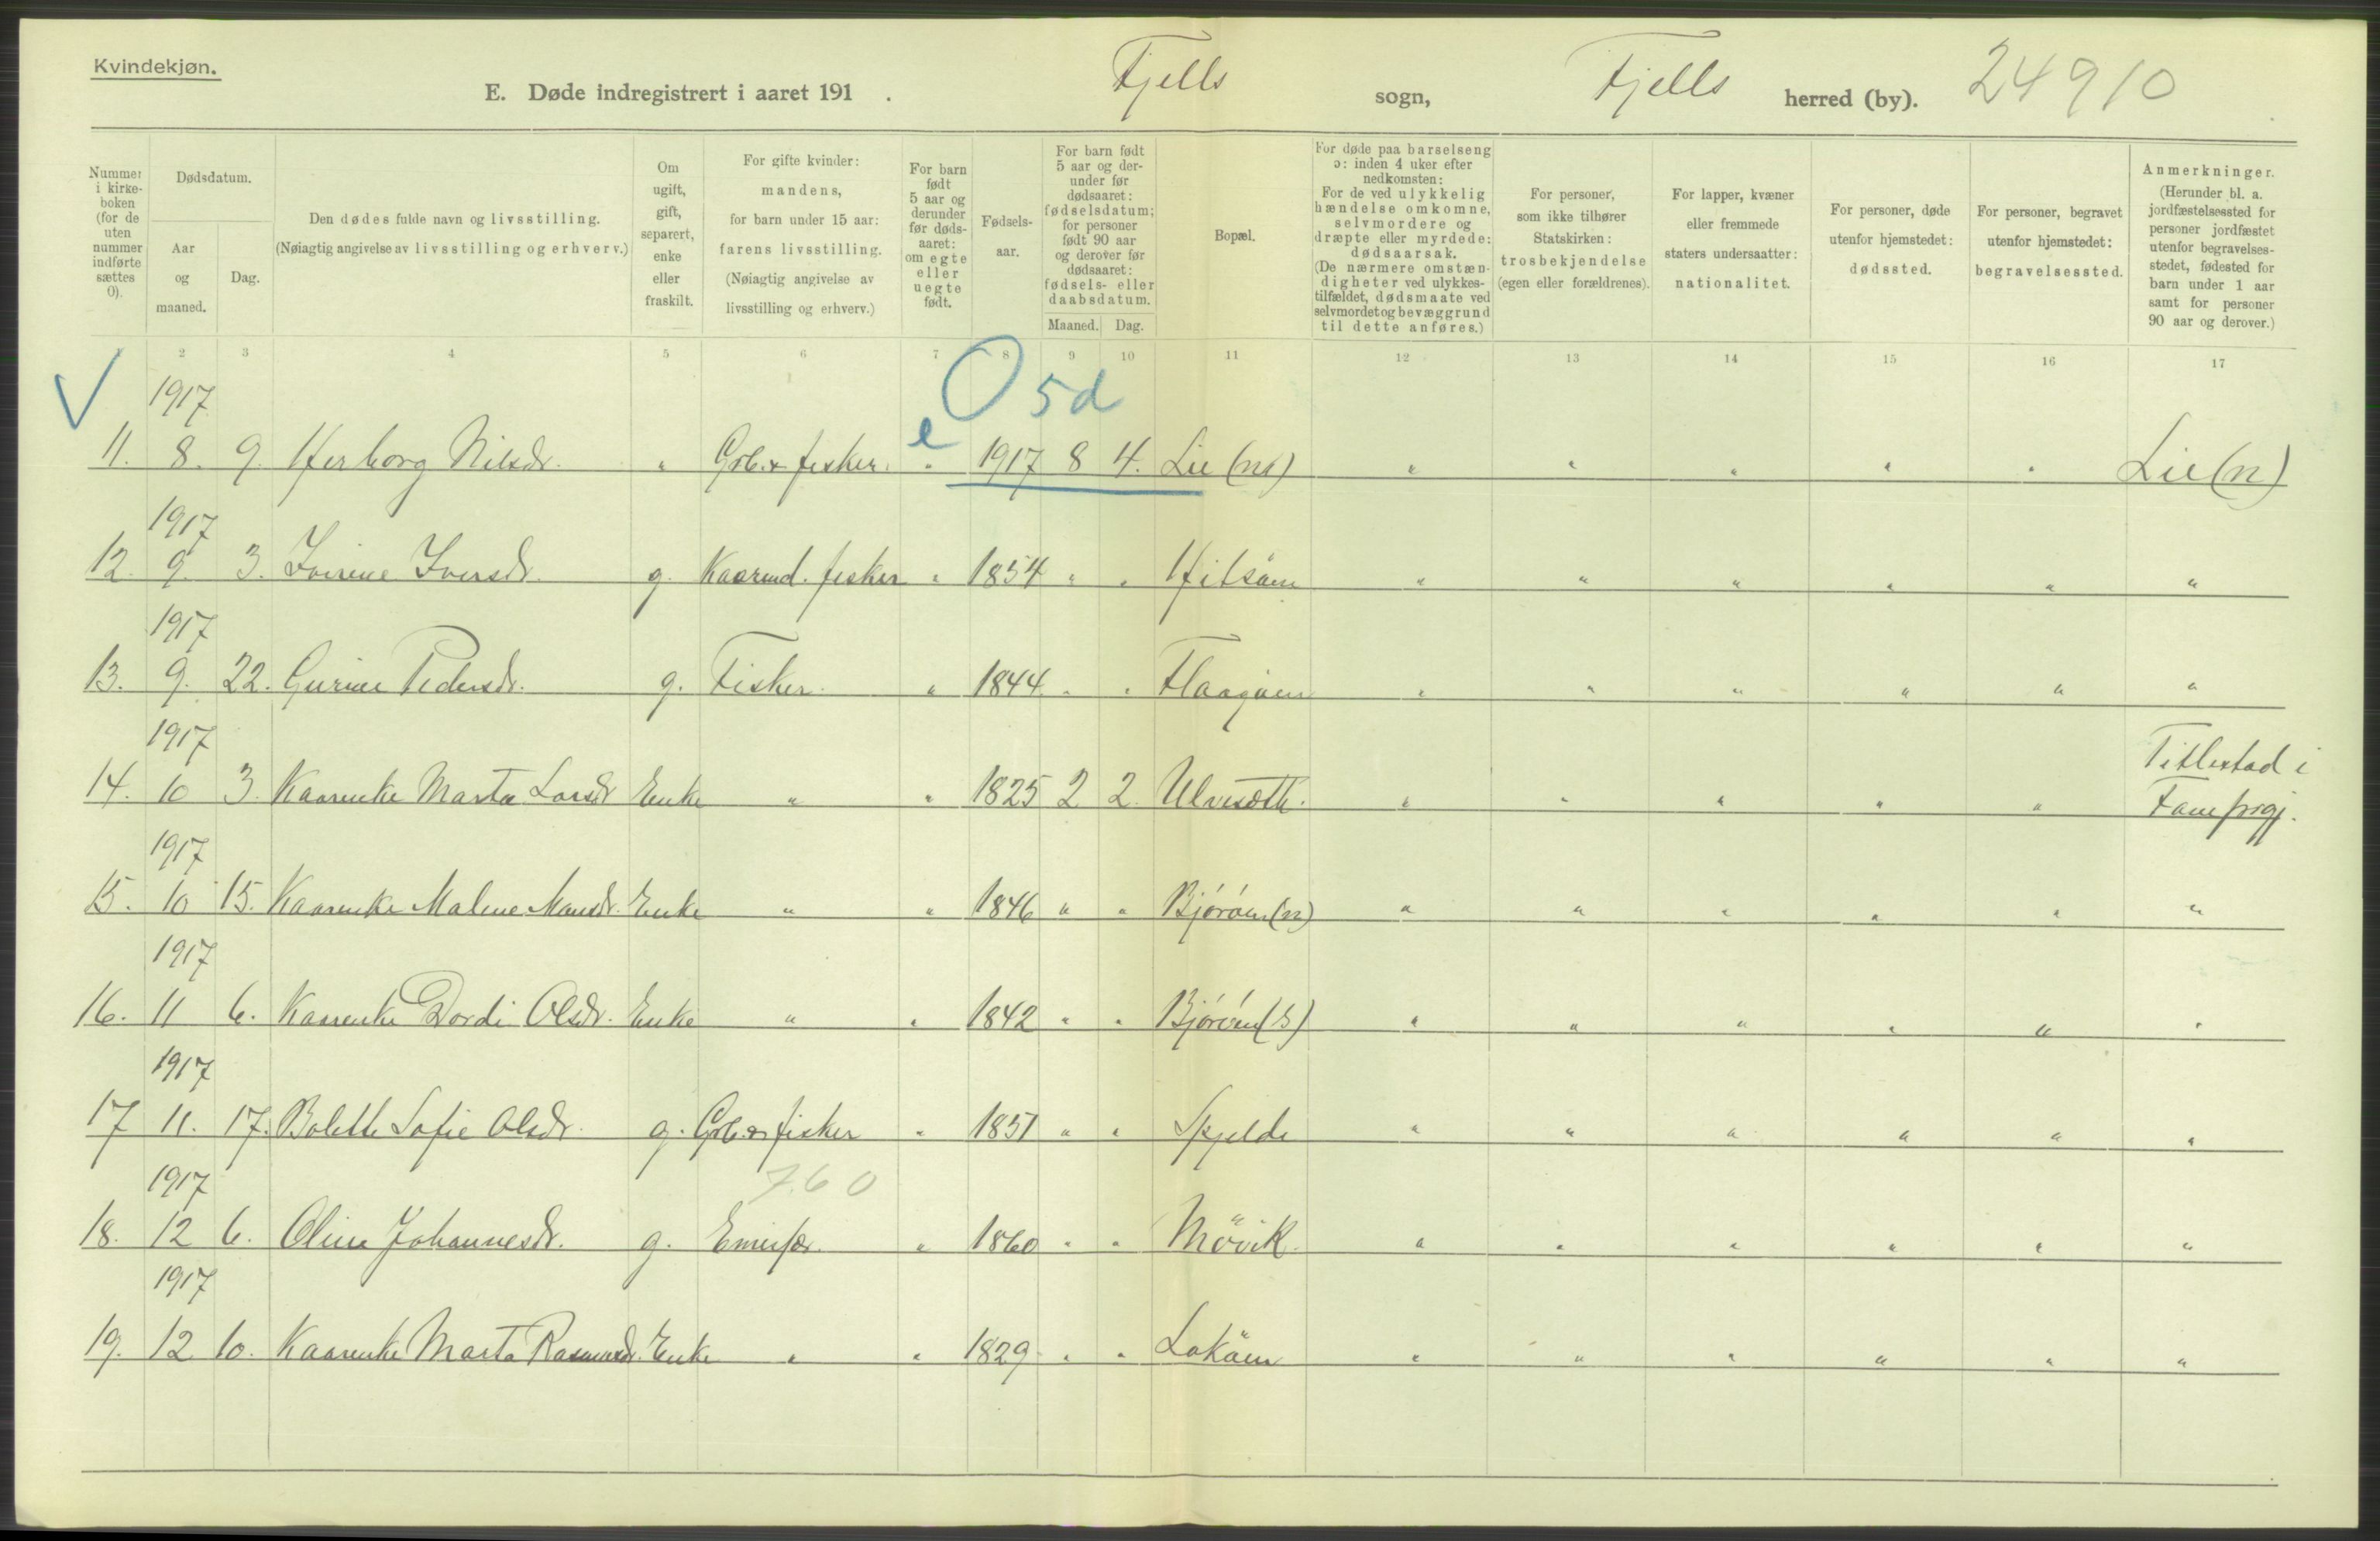 Kvindekjøn.
E. Døde indregistrert i aaret 191 . Fjells sogn, Fjells herred (by). 24910
Nummer i kirkeboken (for de uten nummer indførte sættes 0).
Dødsdatum.
Aar og maaned.
Dag.
Den dødes fulde navn og livsstilling.
(Nøiagtig angivelse av livsstilling og erhverv.)
Om ugift, gift, separert, enke eller fraskilt.
For gifte kvinder: mandens, for barn under 15 aar: farens livsstilling. (Nøiagtig angivelse av livsstilling og erhverv.)
For barn født 5 aar og derunder før dødsaaret: om egte eller uegte født.
Fødselsaar.
For barn født 5 aar og derunder før dødsaaret: fødselsdatum; for personer født 90 aar og derover før dødsaaret: fødsels- eller daabsdatum.
Maaned. Dag.
Bopæl.
For døde paa barselseng ɔ: inden 4 uker efter nedkomsten: For de ved ulykkelig hændelse omkomne, selvmordere og dræpte eller myrdede: dødsaarsak. (De nærmere omstændigheter ved ulykkestilfældet, dødsmaate ved selvmordet og bevæggrund til dette anføres.)
For personer, som ikke tilhører Statskirken: trosbekjendelse (egen eller forældrenes).
For lapper, kvæner eller fremmede staters undersaatter: nationalitet.
For personer, døde utenfor hjemstedet: dødssted.
For personer, begravet utenfor hjemstedet: begravelsessted.
Anmerkninger. (Herunder bl. a. jordfæstelsessted for personer jordfæstet utenfor begravelsesstedet, fødested for barn under 1 aar samt for personer 90 aar og derover.)
1 2 3 4 5 6 7 8 9 10 11 12 13 14 15 16 17
1917 5d
11. 8. 9. Herborg Nilsdr. " Grb. & fisker. e " 1917 8 4. Lie (n) " " " " " Lie (n)
1917
12. 9. 3. Iversdr. g. Kaarmd. fisker " 1854 " " " " " " " "
1917
13. 9. 22. Gurine Pedersdr. g. Fisker. " 1844 " " Flaagøen " " " " " "
1917 Titlestad i
14. 10 3. Kaarenke Marta Larsdr Enke " " 1825 2 2. Ulvesæth. " " " " " Fane prgj.
1917
15. 10 15. Kaarenke Malene Monsdr. Enke " " 1846 " " Bjørøen (n) " " " " " "
1917
16. 11 6. Kaarenke Dordi Olsdr. Enke " " 1842 " " Bjørøen (s) " " " " " "
1917
17 11. 17. Bolette Sofie Olsdr. g. Grb. & fisker " 1851 " " Skjelde " " " " " "
1917 760
18. 12 6. Oline Johannesdr. g. " 1860 " " Møvik. " " " " " "
1917
19. 12 10. Kaarenke Marta Rasmusdr. Enke " " 1829 " " Lokøen " " " " " "